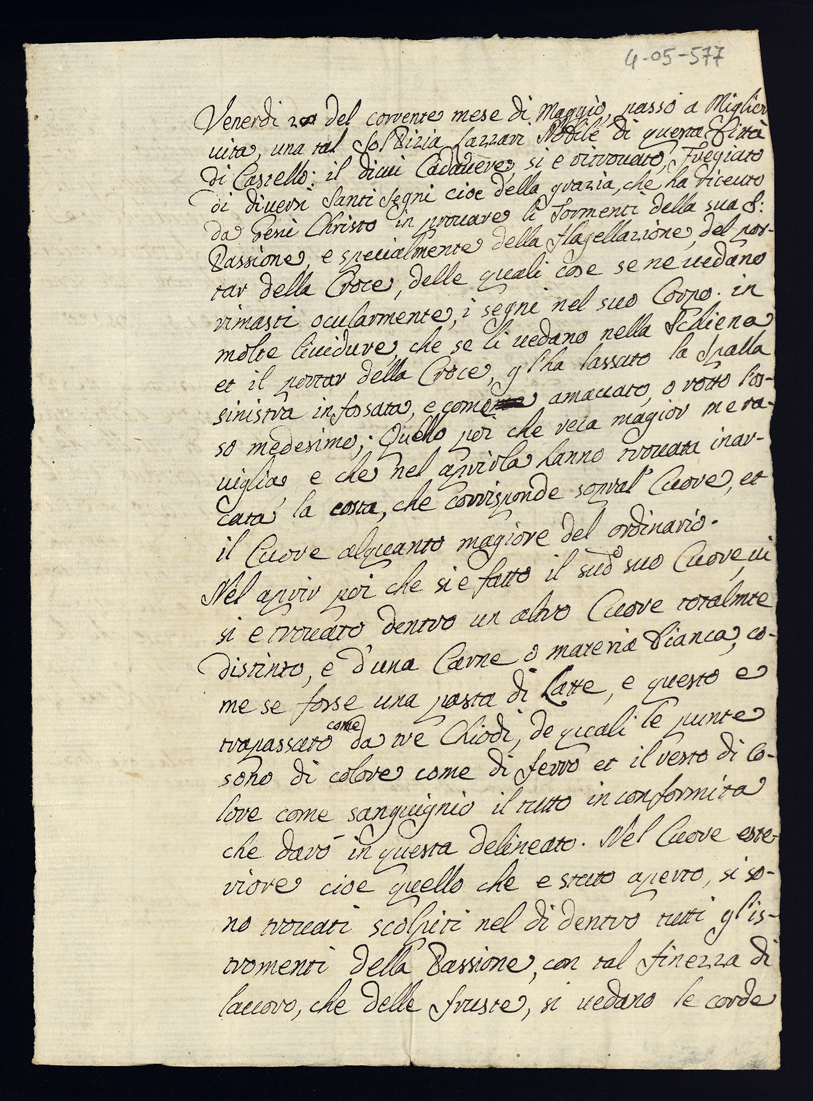 4-05-577
Venerdi del corrente mese di Maggio, passo a Miglior
vita, una tal Lazzari Nobile di questa Città
di Castello: il dicui Cadavere, si e ritrovato, fregiato
di diversi Santi segni cioe della grazia, che ha riceuto
da Giesù Christo in provare li tormenti della sua S:
Passione, e specialmente della flagellazione, del por-
tar della Croce, delle quali cose se ne vedano
rimasti ocularmente, i segni nel suo Corpo. in
molte lividure, che se li vedano nella Schiena
et il portar della Croce, gl'ha lassato la spalla
sinistra infossata, e come amaccato, o rotto l'os-
so medesimo; Quello poi che reca magior mera-
viglia e che nel aprirla hanno trovata inar-
cata la costa, che corrisponde sopral' Cuore, et
il Cuore alquanto magiore del ordinario.
Nel aprir poi che si e fatto il sud.o suo Cuore, vi
si e trovato dentro un altro Cuore totalmte
distinto, e d'una Carne o materia bianca, co-
me se fosse una pasta di Latte, e questo e
trapassato come da tre Chiodi, de quali le punte
sono di colore come di ferro et il resto di co-
lore come sanguignio il tutto in conformità
che darò in questa delineato. Nel Cuore este-
riore cioe quello che e stato aperto, si so-
no trovati scolpiti nel di dentro tutti gl'is-
tromenti della Passione, con tal finezza di
lavoro, che delle fruste, si vedano le corde